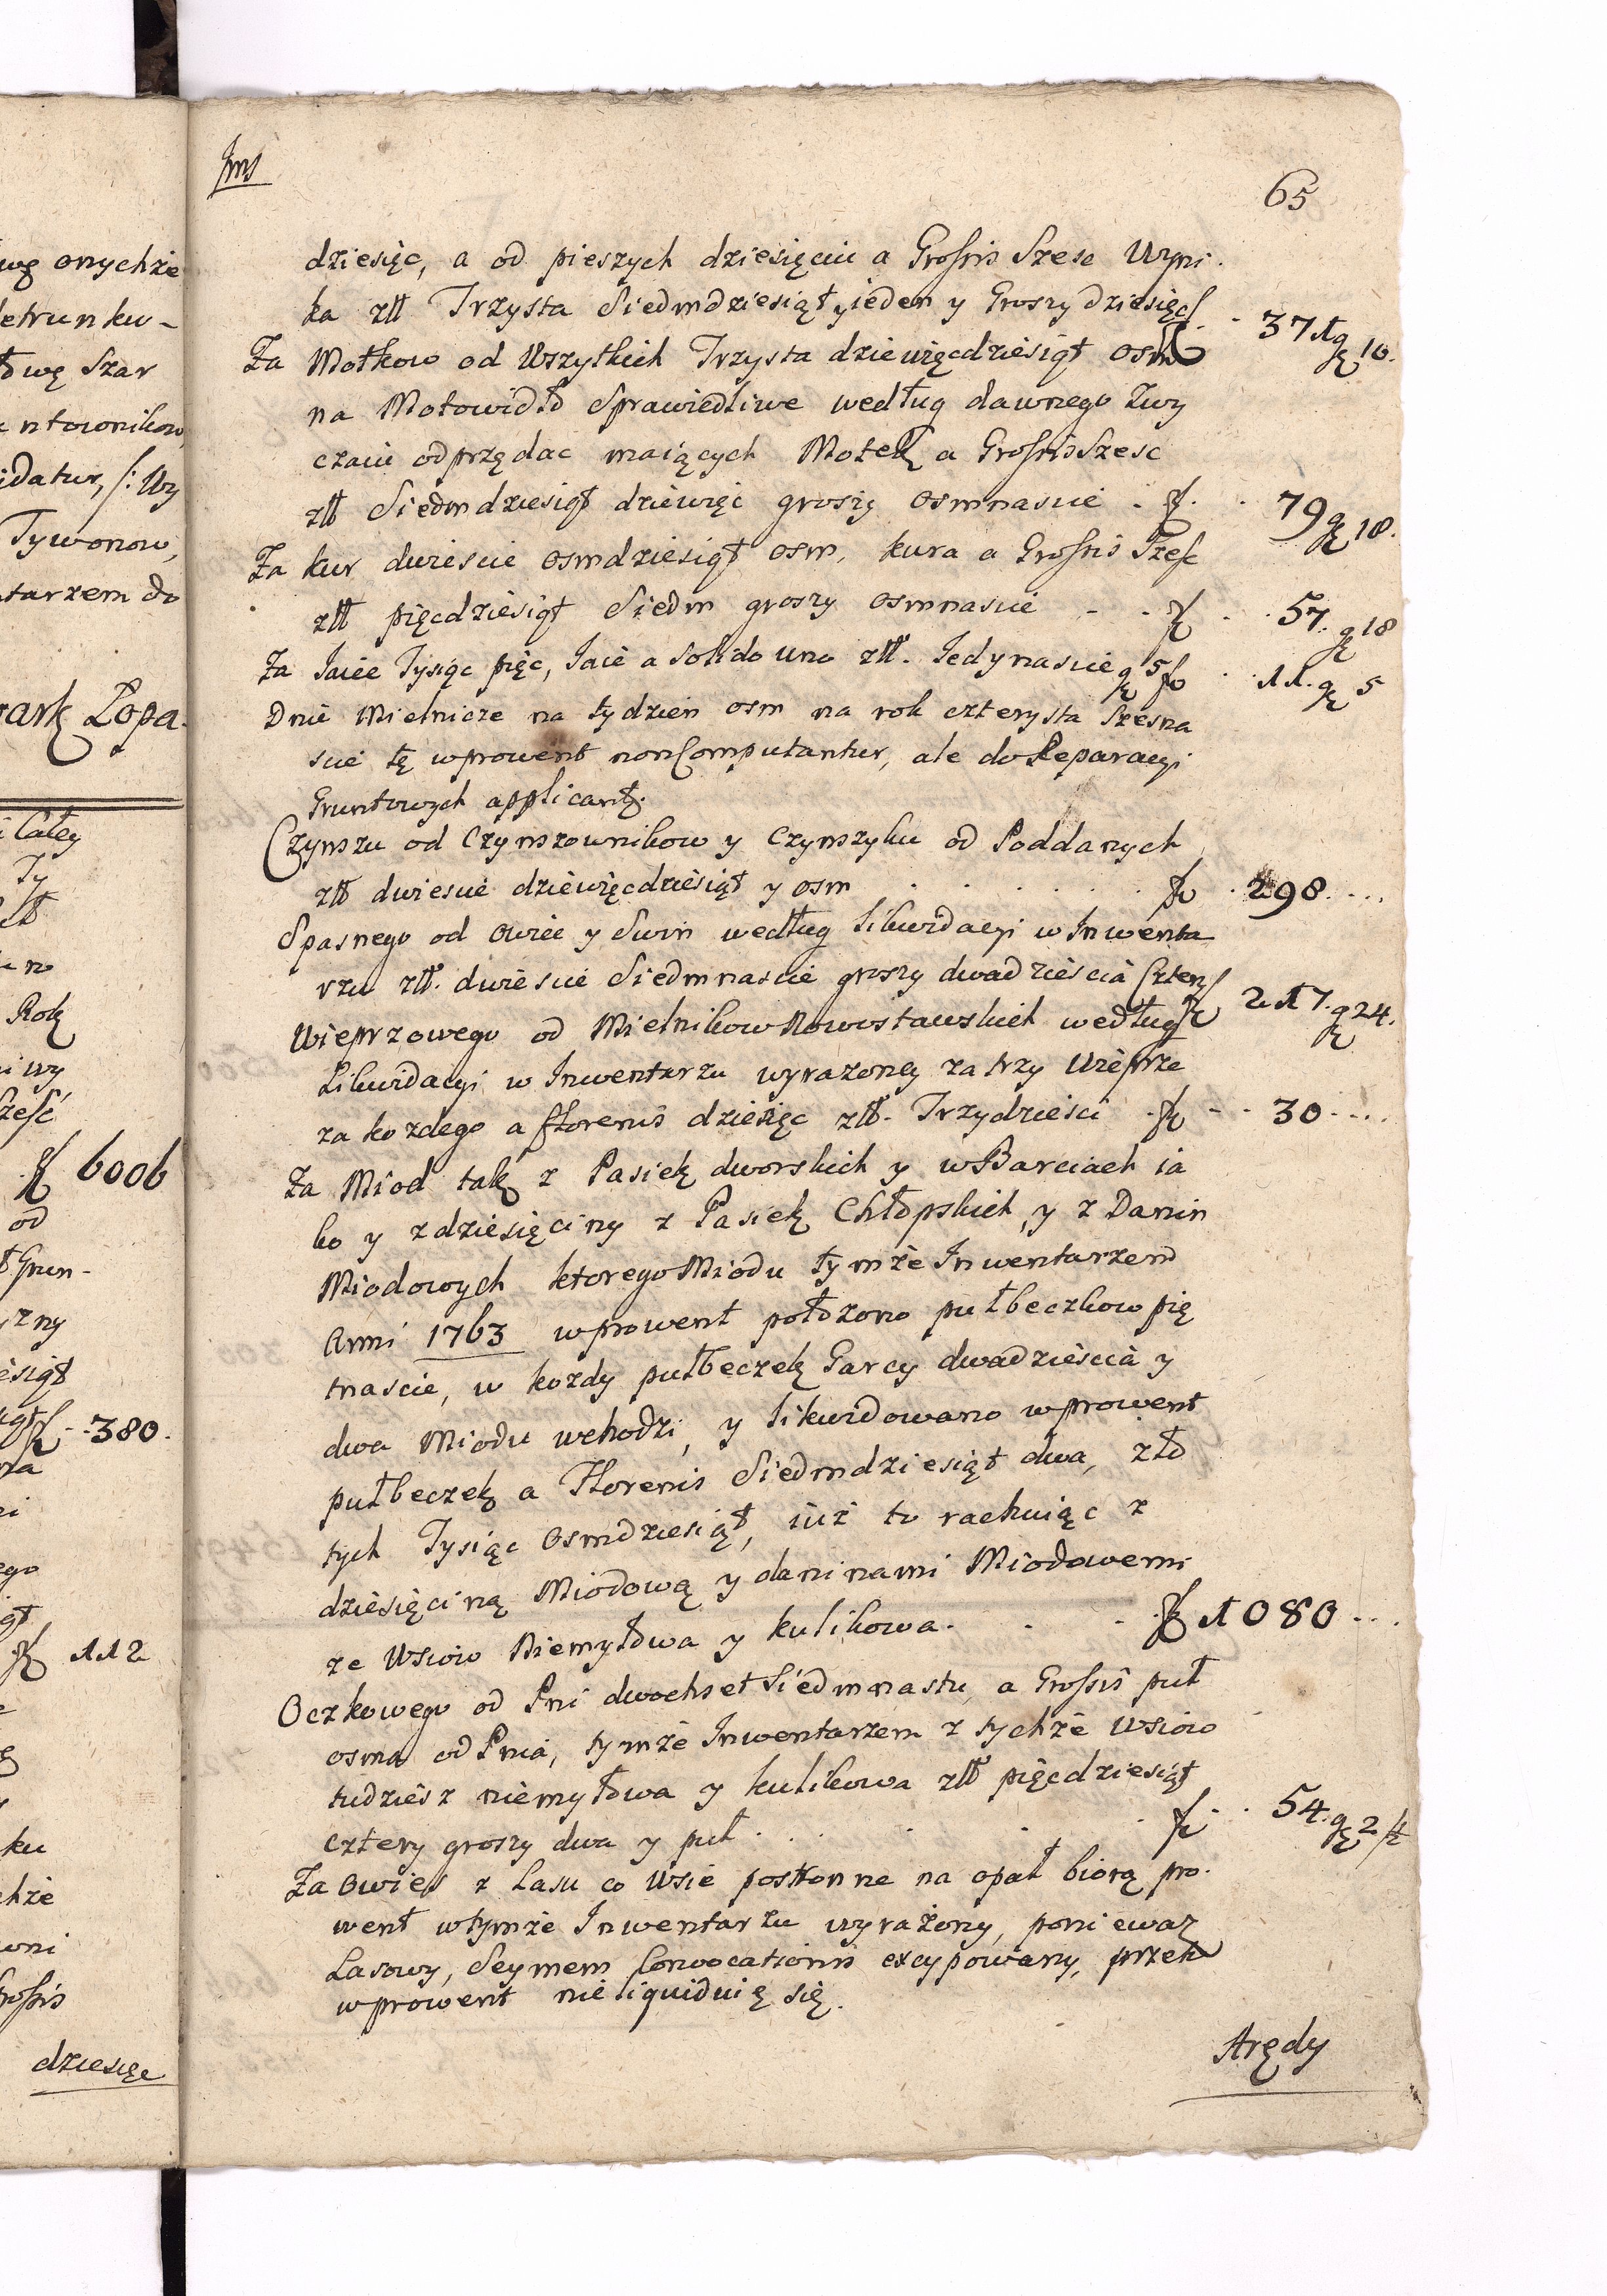 65
dziesięc, a od pieszych dziesięciu a Grossis Szesc Wyni.
ka złł Trzysta Siedmdziesiąt y ieden y Groszy dziesięc f 371 g 10.
Za Motkow od Wszytkich Trzysta dziewięcdziesiąt osm
na Motowidło Sprawiedliwe według dawnego Zwy
czaiu odprzędac maiących Motek a Grossis Szesc
złł Siedmdziesiąt dziewięć groszy osmnascie . f. . 79 g 18.
Za kur dwiescie osmdziesiąt osm, kura a Grossis Szesc
złł pięcdziesiąt Siedm groszy osmnascie - . f . 57. g 18
Za Jaiec Tysiąc pięc, Jaie a Solido uno złł. Jedynascie g 5 f . 11. g 5
Dnie Mielnicze na tydzien osm na rok czterysta Szesna
scie tę w prowent non Computantur, ale do Reparacyi
Gruntowych applicant.
Czynszu od Czynszownikow y Czynszyku od Poddanych
złł dwiescie dziewięcdziesiąt y osm . . . . . f . 298. ...
Spasnego od owiec y Swin według Likwidacyi w Inwenta
rzu złł. dwiescie Siedmnascie groszy dwadziescia Cztery f 217. g 24.
Wieprzowego od Mielnikow Nowostawskich według
Likwidacyi w Inwentarzu wyrazoney za trzy Wieprze
za kozdego a florenis dziesięc złł. Trzydziesci . f - . 30....
Za Miod tak z Pasiek dworskich y w Barciach ia
ko y z dziesięciny z Pasiek Chłopskich, y z Danin
Miodowych ktorego Miodu tymże Inwentarzem
Anni 1763 w prowent położono pułbeczkow pię
tnascie, w kozdy pułbeczek Garcy dwadziescia y
dwa Miodu wchodzi, y likwidowano w prowent
pułbeczek a Florenis Siedmdziesiąt dwa, zło
tych Tysiąc Osmdziesiąt, iuż tu rachuiąc z
dziesięciną Miodową y daninami Miodowemi
ze Wsiow Niemyłowa y kulikowa. . . f 1080 ...
Oczkowego od Pni dwochset Siedmnastu, a Grossis puł
osma od Pnia, tymże Inwentarzem z tychże Wsiow
tudziesz niemyłowa y kulikowa złł pięcdziesiąt
cztery groszy dwa y puł . . . . f . . 54. g 2 1/2
Za owies z Lasu co Wsie postronne na opał biorą pro.
went w tymże Inwentarzu wyrażony, poniewaz
Lasowy, Seymem Convocationis excypowany, przeto
w prowent nie liquiduię się.
Arędy
wę onychże
etrunku -
Szar
ntownikow
idatur, /: Wy
Tywonow,
tarzem do
Łopa.
Całey
Ty
Rok
Szesć
f 6006
od
Grun-
zny
esiąt
f - - 380.
ego
f 112
ku
chże
Grossis
dziesięc